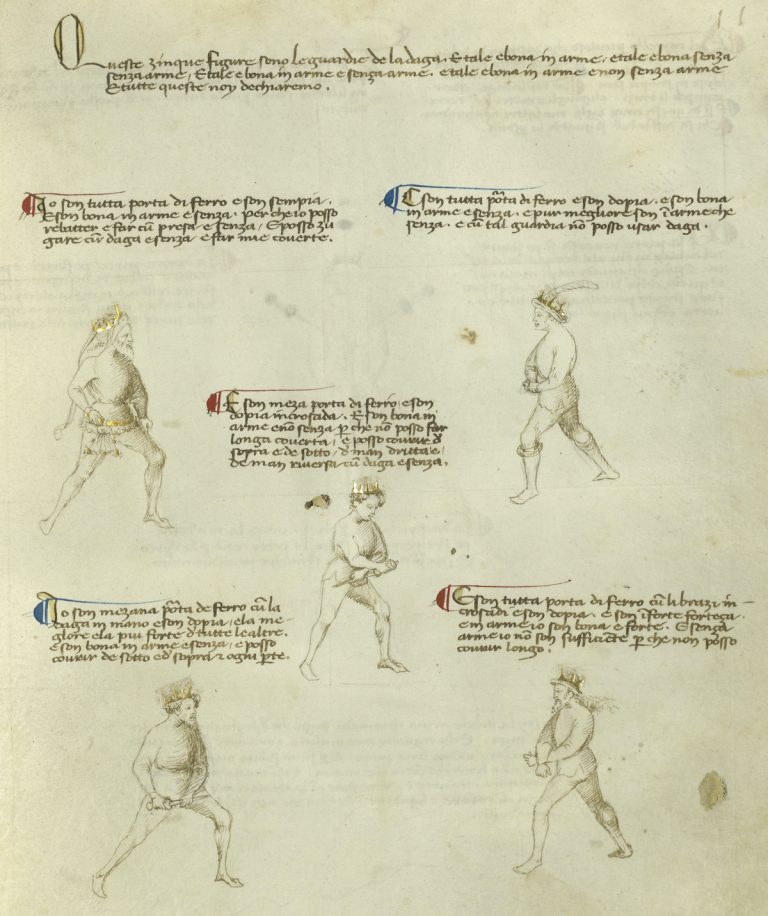 11
Queste zinque figure sono le guardie de la daga. E tale e bona in arme, e tale e bona senza
senza arme, E tale e bona in arme e senza arme. e tale e bona in arme e non senza arme
E tutte queste noy dechiaremo.
Io son tutta porta di ferro e son sempia.
E son bona in arme e senza. per che io posso
rebatter e far cū presa e senza, E posso zu
gare cū daga e senza e far mie coverte.
E son tutta pōta di ferro e son dopia. e son bona
in arme e senza. e pur megliore son ī arme che
senza. e cū tal guardia nō posso usar daga.
E son meza porta di ferro e son
dopia incrosada. E son bona in
arme e nō senza p che nō posso far
longa coverta, e posso covrir d
sopra e de sotto, d man dritta e
de man riversa cū daga e senza.
Io son mezana pōta de ferro cū la
daga in mano e son dopia, e la me-
gliore e la piu forte d tutte le altre.
E son bona in arme e senza, e posso
covrir de sotto ed sopra ⁊ ogni pte.
E son tutta porta di ferro cū li brazi in-
crosadi e son dopia. e son ī forte forteça.
e in arme io son bona e forte. E senza
arme io nō son sufficiēte p che non posso
covrir longo.